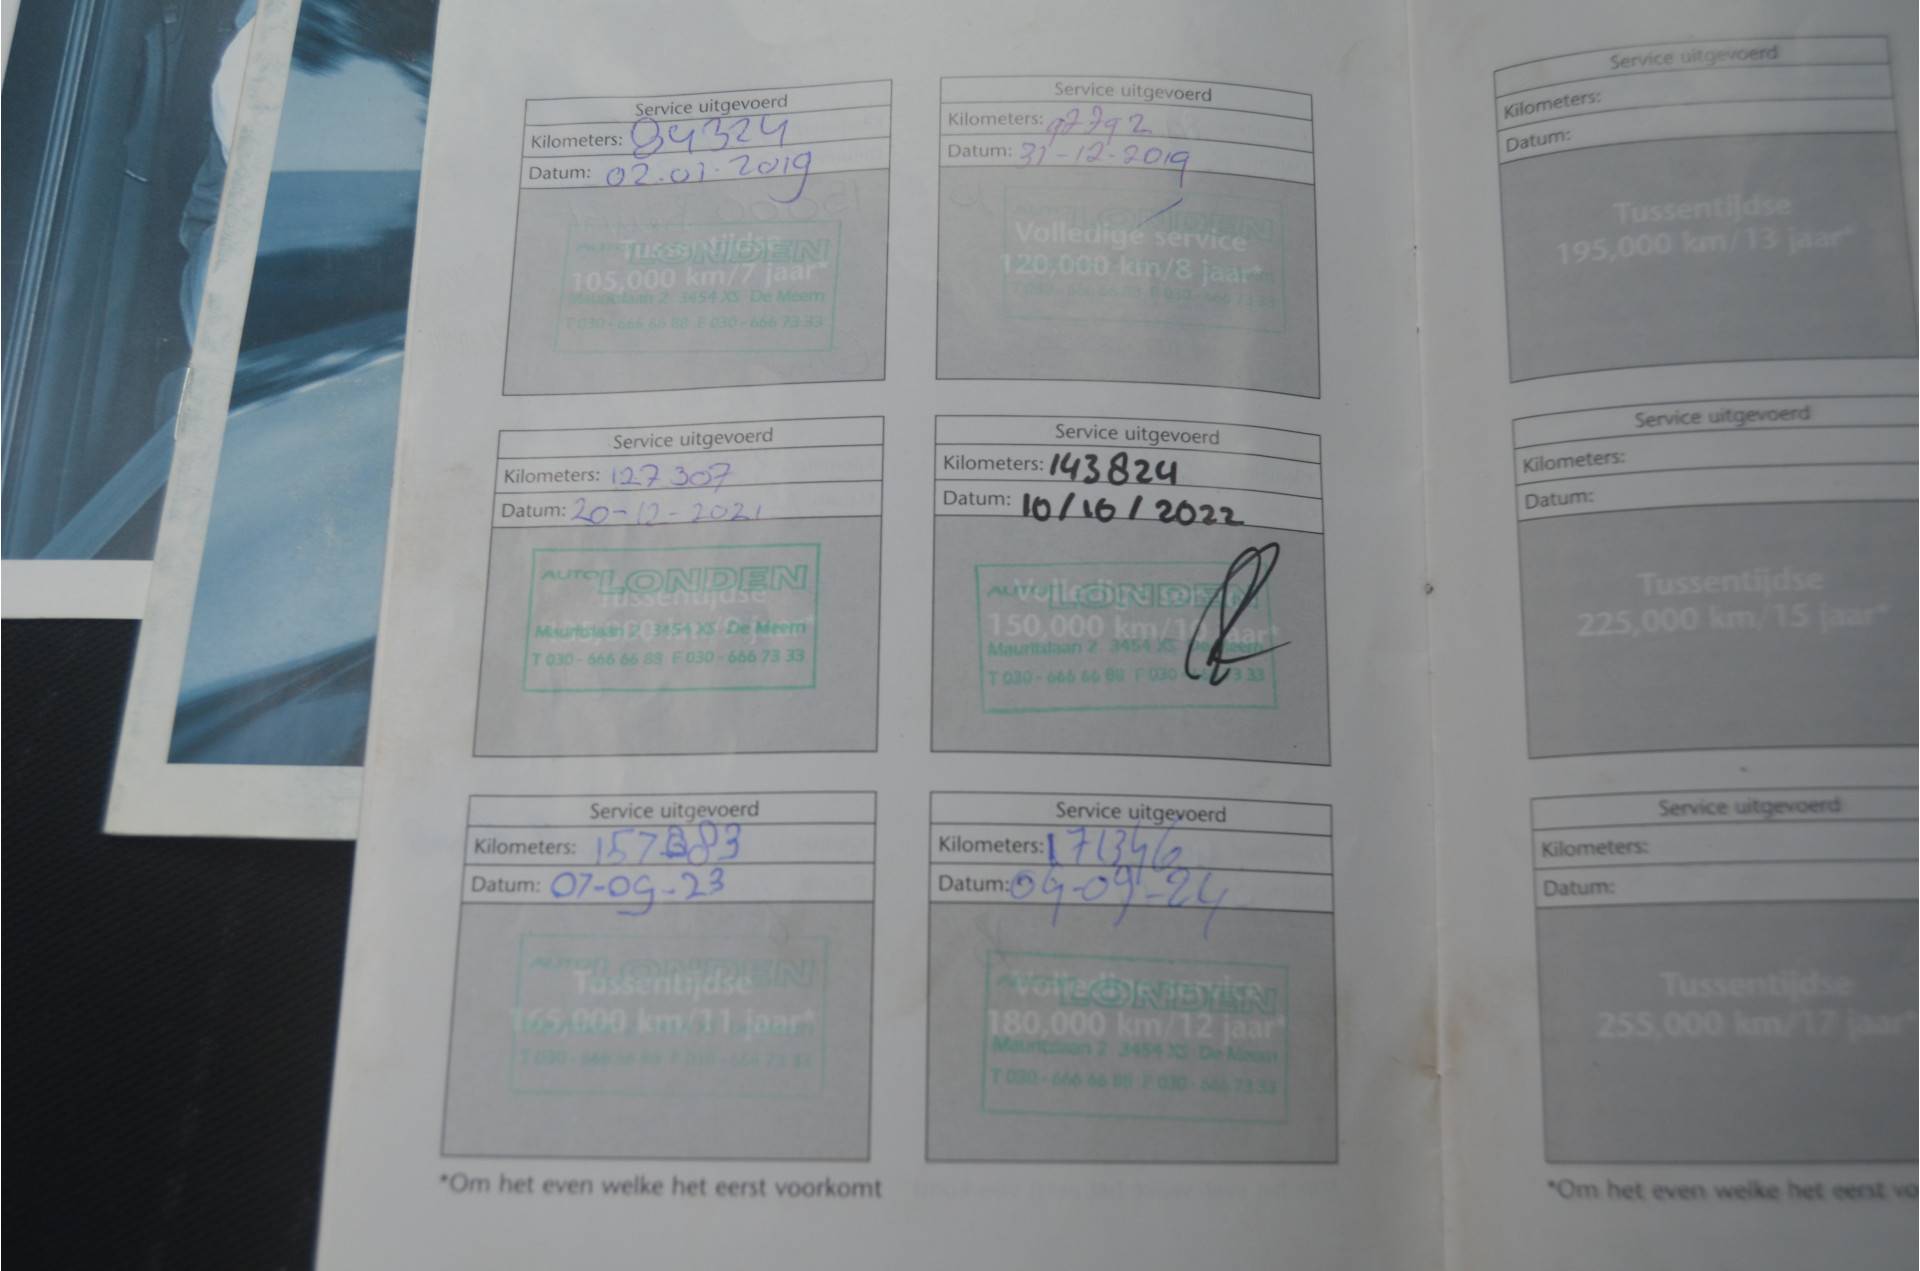 Service uitgevoerd
Kilometers: 84324
Datum: 02.01.2019
AUTO LONDEN
Tussentijdse
105,000 km/7 jaar*
Mauritslaan 2 3454 XS De Meern
T 030 - 666 66 88 F 030 - 666 73 33
Service uitgevoerd
Kilometers: 97792
Datum: 31-12-2019
LONDEN
Volledige service
120,000 km/8 jaar*
Service uitgevoerd
Kilometers: 127307
Datum: 20-12-2021
AUTO LONDEN
Tussentijdse
Mauritslaan 2 3454 XS De Meern
T 030 - 666 66 88 F 030 - 666 73 33
Service uitgevoerd
Kilometers: 143824
Datum: 10/16/2022
AUTO LONDEN
Volledige service
150,000 km/10 jaar*
Mauritslaan 2 3454 XS De Meern
T 030 - 666 66 88 F 030 73 33
Service uitgevoerd
Kilometers:
Datum: 07-09-23
AUTO LONDEN
Tussentijdse
165,000 km/11 jaar*
T 030 - 666 66 88 F 030 - 666 73 33
Service uitgevoerd
Kilometers: 171346
Datum: 09-09-24
AUTO LONDEN
Volledige service
180,000 km/12 jaar*
Mauritslaan 2 3454 XS De Meern
T 030 - 666 66 88 F 030 - 666 73 33
*Om het even welke het eerst voorkomt
Service uitgevoerd
Kilometers:
Datum:
Tussentijdse
195,000 km/13 jaar*
Service uitgevoerd
Kilometers:
Datum:
Tussentijdse
225,000 km/15 jaar*
Service uitgevoerd
Kilometers:
Datum:
Tussentijdse
255,000 km/17 jaar*
*Om het even welke het eerst vo